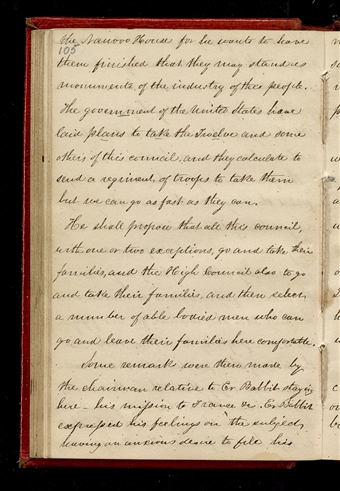 The Nauvoo House for he wants to leave
105
them finished that they may stand as
monuments of the industry of this people.
The government of the United States have
laid plans to take the Twelve and some
others of this council and they calculate to
send a regiment of troops to take them
but we can go as fast as they can.
He shall propose that all this council,
with one or two exceptions, go and take their
families, and the High Council also to go
and take their families, and then select
a number of able bodied men who can
go and leave their families here comfortable.
Some remarks were then made by
the chairman relative to Er Babbit staying
here his mission to France &c. Er Babbit
expressed his feelings on the subject,
having an anxious desire to file his